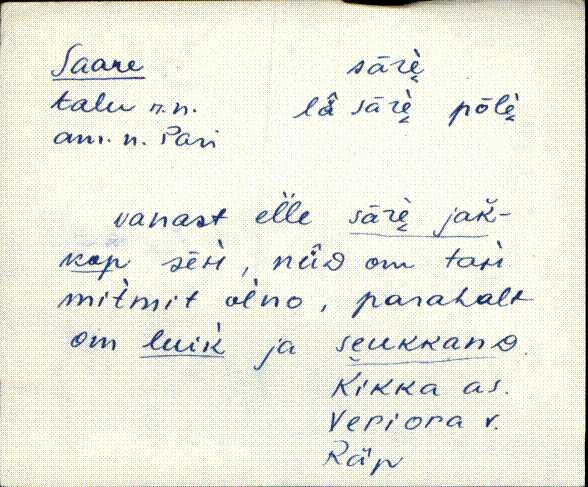 Saare sārè̬
talu r.n. lǟ sārè̬ pōlè̬
am. n. Pari
vanast elle sārè̬ jak-
kop sēn, nǖD om tari
mitmit olno, parahalt
om luik ja seukkand
Kikka as.
Veriora v.
Räp